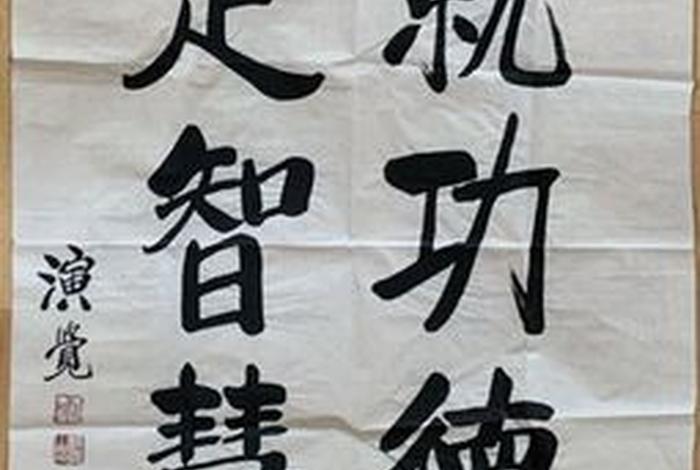 就功德
足智慧
演覺